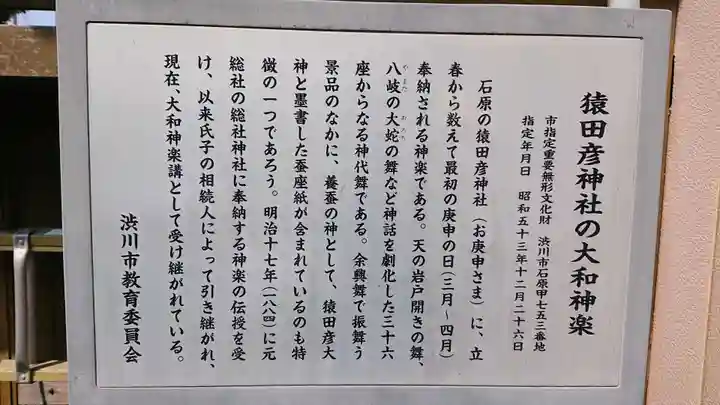 猿田彦神社の大和神楽
市指定重要無形文化財　渋川市石原甲七五三番地
指定年月日　昭和五十三年十二月二十六日
石原の猿田彦神社（お庚申さま）に、立
春から数えて最初の庚申の日（三月～四月）
奉納される神楽である。天の岩戸開きの舞、
八岐の大蛇の舞など神話を劇化した三十六
やまた　おろち
座からなる神代舞である。余興舞で振舞う
景品のなかに、養蚕の神として、猿田彦大
神と墨書した蚕座紙が含まれているのも特
徴の一つであろう。明治十七年（一八八四）に元
総社の総社神社に奉納する神楽の伝授を受
け、以来氏子の相続人によって引き継がれ、
現在、大和神楽講として受け継がれている。
渋川市教育委員会